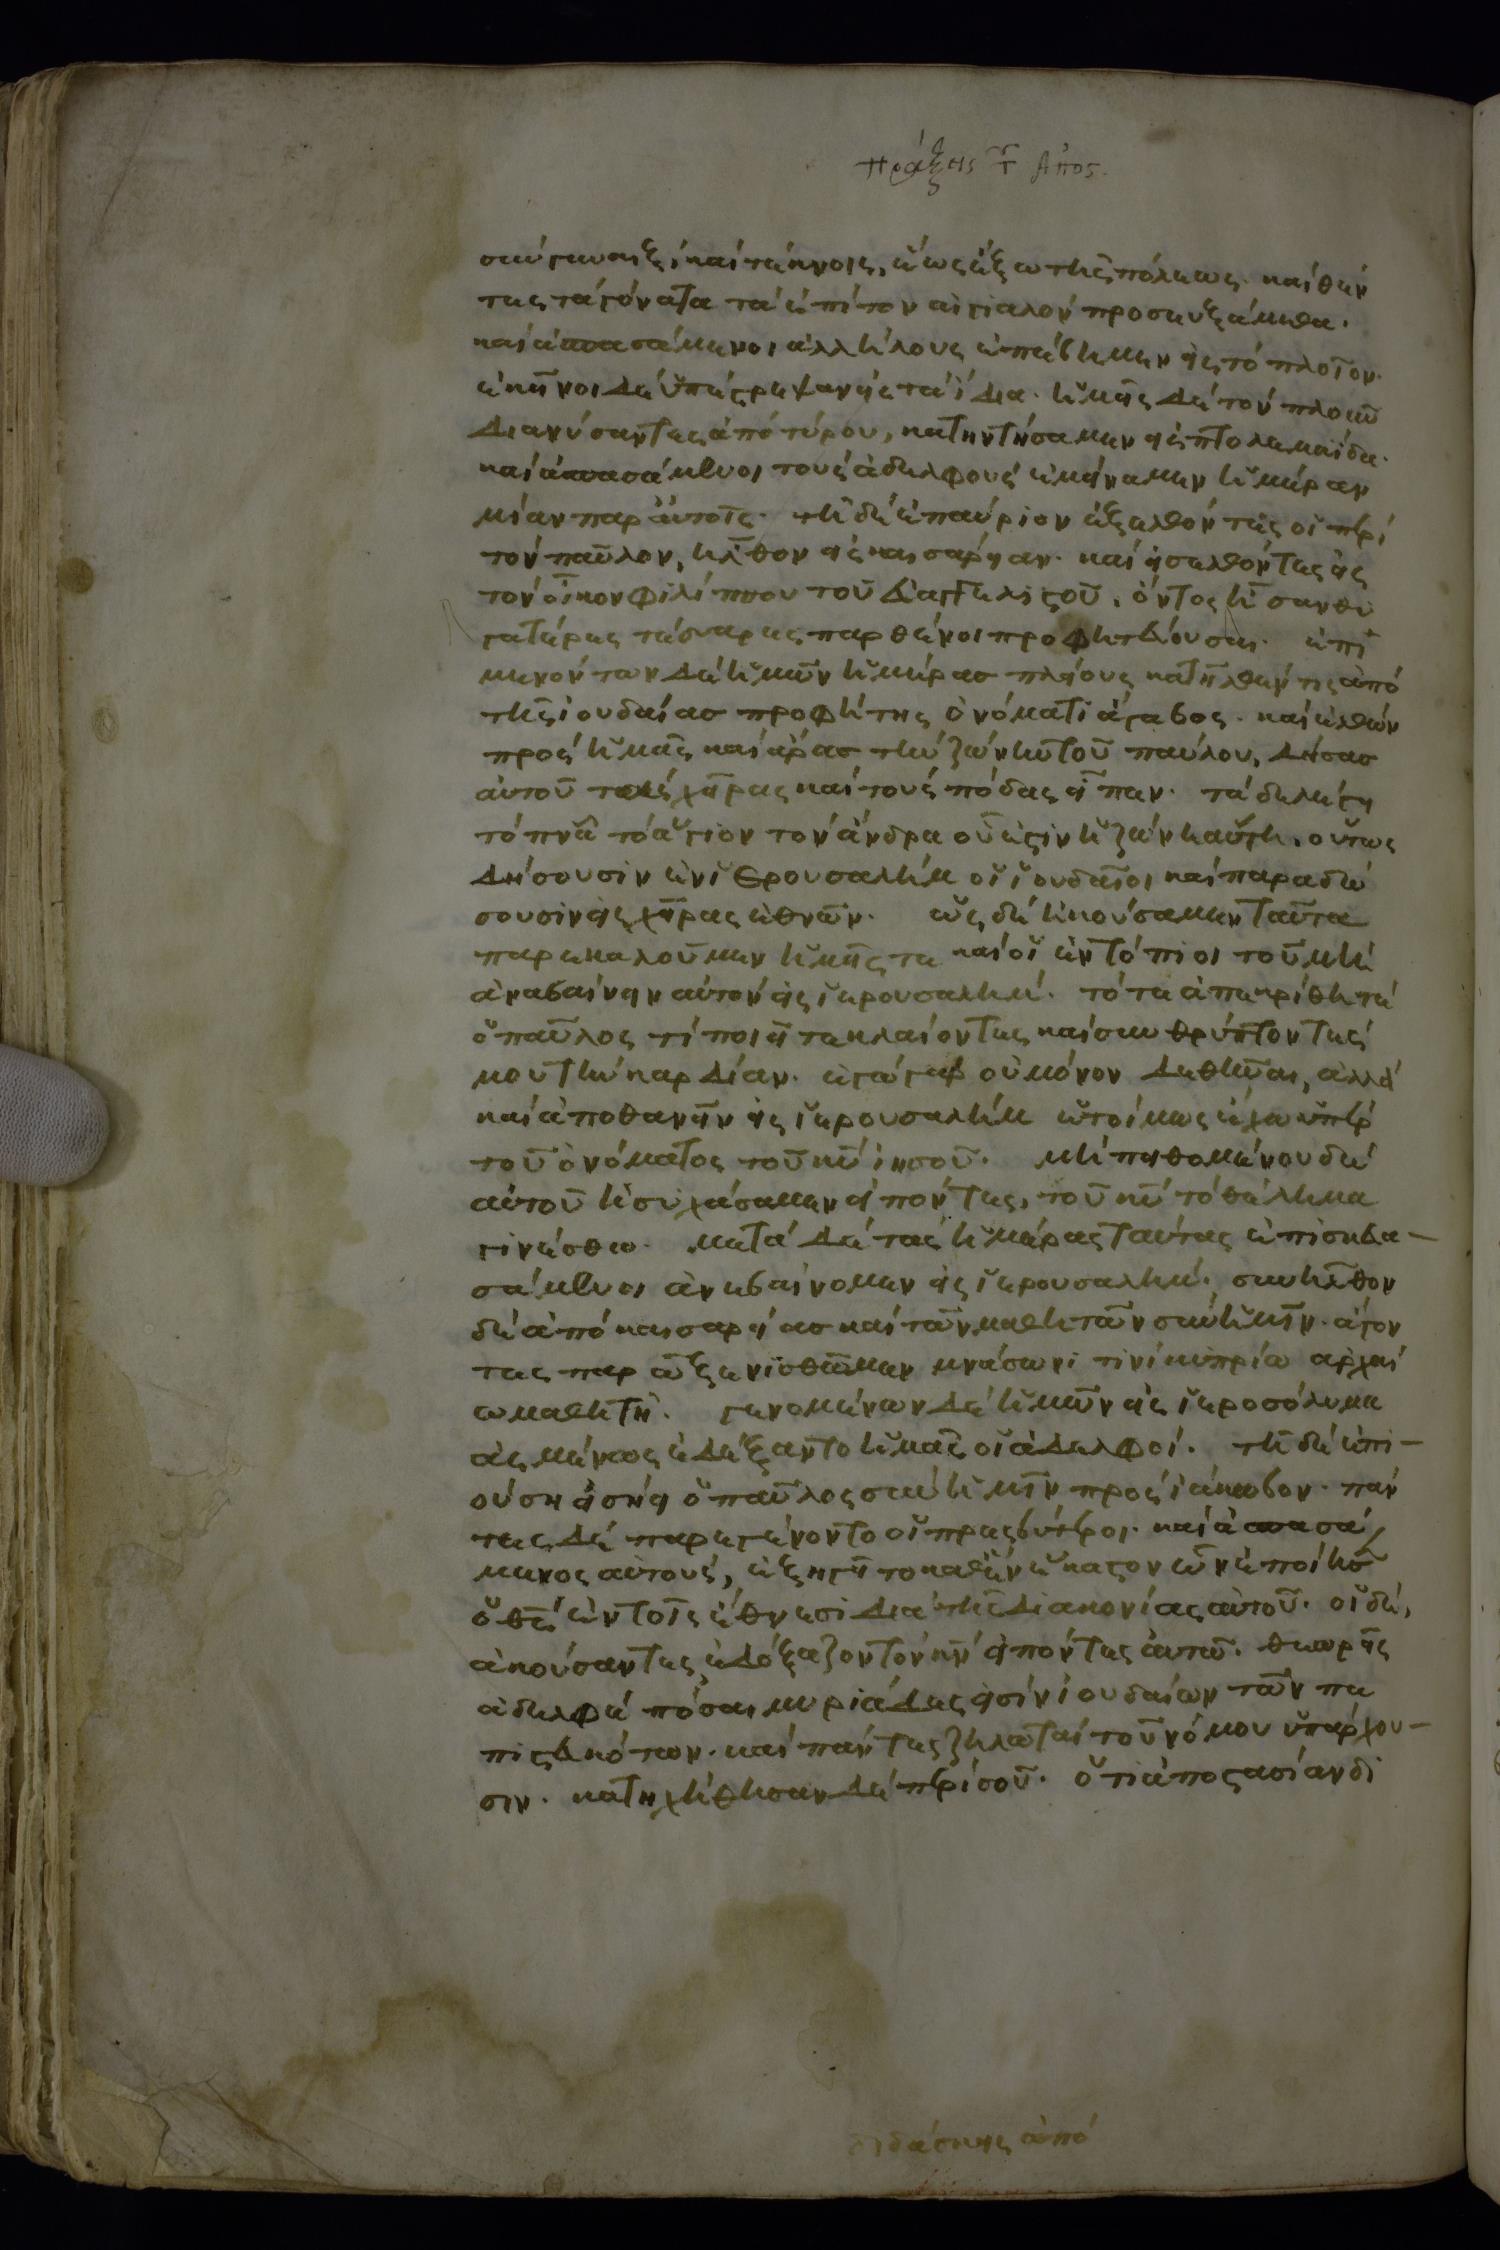 πράξεις τ Απος.
σὺν γυναιξὶ καὶ τέκνοις, ἕως ἔξω τῆς πόλεως. καὶ θέν
τες τὰ γόνατα τὰ ἐπὶ τὸν αἰγιαλὸν προσευξάμεθα.
καὶ ἀσπασάμενοι ἀλλήλους ἐπέβημεν εἰς τὸ πλοῖον.
ἐκεῖνοι δὲ ὑπέστρεψαν εἰς τὰ ἴδια. ἡμεῖς δὲ τὸν πλοῦν
διανύσαντες ἀπὸ τύρου, κατηντήσαμεν εἰς πτολεμαΐδα.
καὶ ἀσπασάμενοι τοὺς ἀδελφοὺς ἐμείναμεν ἡμέραν
μίαν παρ αὐτοῖς. τῇ δὲ ἐπαύριον ἐξελθόντες οἱ περὶ
τὸν παῦλον, ἦλθον εἰς καισάρειαν. καὶ εἰσελθόντες εἰς
τὸν οἶκον φιλίππου τοῦ εὐαγγελιστοῦ,
γατέρες τέσσαρες παρθένοι προφητεύουσαι. ἐπι
μενόντων δὲ ἡμῶν ἡμέρασ πλείους κατῆλθέν τις ἀπὸ
τῆς ἰουδαίασ προφήτης ὀνόματι ἄγαβος. καὶ ἐλθὼν
πρὸς ἡμᾶς καὶ ἄρασ τὴν ζώνην τοῦ παύλου, δήσασ
αὐτοῦ τὰς χεῖρας καὶ τοὺς πόδας εἶπεν. τάδε λέγει
τὸ πνᾶ τὸ ἅγιον τὸν ἄνδρα οὗ ἐστιν ἡ ζώνη αὕτη, οὕτως
δήσουσιν ἐν ἱερουσαλὴμ οἱ ἰουδαῖοι καὶ παραδώ
σουσιν εἰς χεῖρας ἐθνῶν. ὡς δὲ ἠκούσαμεν ταῦτα
παρεκαλοῦμεν ἡμεῖς τε καὶ οἱ ἐντόπιοι τοῦ μὴ
ἀναβαίνειν αὐτὸν εἰς ἱερουσαλήμ. τότε ἀπεκρίθη τὲ
ὁ παῦλος τί ποιεῖτε κλαίοντες καὶ συνθρύπτοντές
μου τὴν καρδίαν. ἐγὼ γὰρ οὐ μόνον δεθῆναι, ἀλλὰ
καὶ ἀποθανεῖν εἰς ἱερουσαλὴμ ἑτοίμως ἔχω ὑπὲρ
τοῦ ὀνόματος τοῦ κυ ἰησοῦ. μὴ πειθομένου δὲ
αὐτοῦ ἡσυχάσαμεν εἰπόντες, τοῦ κυ τὸ θέλημα
γινέσθω. μετὰ δὲ τὰς ἡμέρας ταύτας ἐπισκευα-
σάμενοι ἀνεβαίνομεν εἰς ἱερουσαλήμ. συνῆλθον
δὲ ἀπὸ καισαρείασ καὶ τῶν μαθητῶν σὺν ἡμῖν. ἄγον
τες παρ ᾧ ξενισθῶμεν μνάσωνι τινὶ κυπρίω ἀρχαί
ω μαθητῇ. γενομένων δὲ ἡμῶν εἰς ἱεροσόλυμα
ἀσμένως ἐδέξαντο ἡμᾶς οἱ ἀδελφοί. τῇ δὲ ἐπι-
ούση εἰσήει ὁ παῦλος σὺν ἡμῖν πρὸς ἰάκωβον. πάν
τες δὲ παρεγένοντο οἱ πρεσβύτεροι. καὶ ἀσπασά
μενος αὐτοὺς, ἐξηγεῖτο καθ ἓν ἕκαστον ὧν ἐποίησ
ὁ θς ἐν τοῖς ἔθνεσι διὰ τῆς διακονίας αὐτοῦ. οἱ δὲ,
ἀκούσαντες ἐδόξαζον τὸν κν εἰπόντες αὐτῶ. θεωρεῖς
ἀδελφὲ πόσαι μυριάδες εἰσὶν ἰουδαίων τῶν πε
πιστευκότων. καὶ πάντες ζηλωταὶ τοῦ νόμου ὑπάρχου-
σιν. κατηχήθησαν δὲ περὶ σοῦ. ὅτι ἀποστασίαν δι
διδάσκεις ἀπὸ